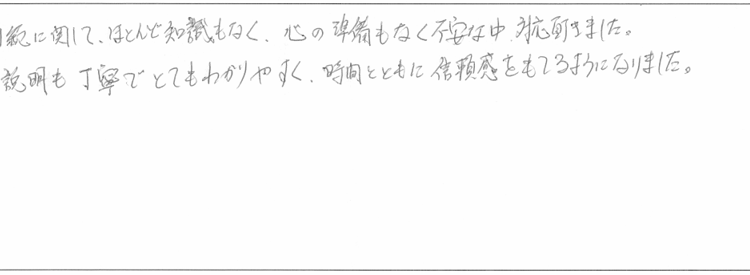 続に関して、ほとんど知識もなく、心の準備もなく不安な中、対応頂きました。
説明も丁寧でとてもわかりやすく、時間とともに信頼感をもてるようになりました。